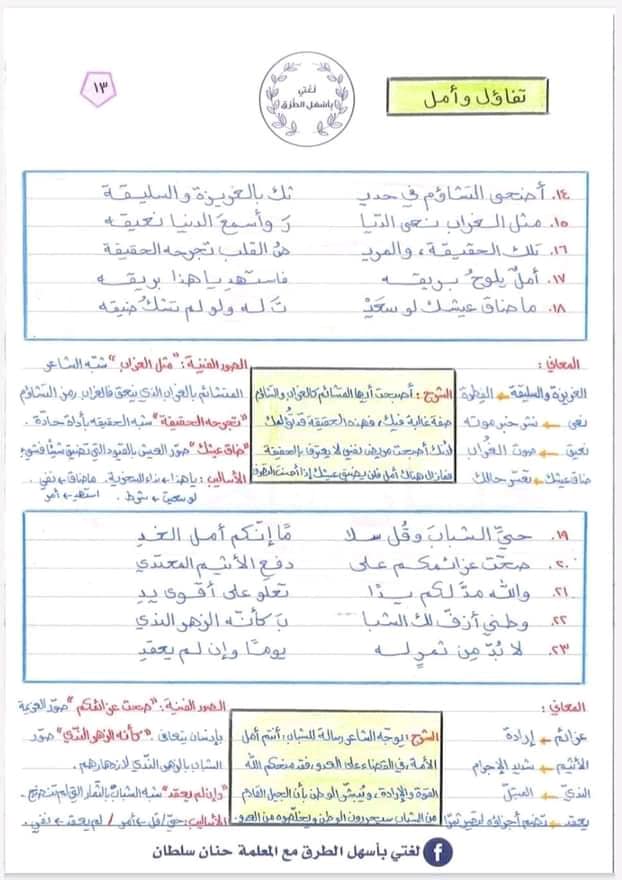 ١٣
لغتي
بأسهل الطرق
تفاؤل وأمل
١٤. أضحى التشاؤم في حديـ ثك بالغريزة والسليقة
١٥. مثل الغراب نعى الديا ر وأسمع الدنيا نعيقه
١٦. تلك الحقيقة، والمريـ ض القلب تجرحه الحقيقة
١٧. أملٌ يلوحُ بريقـه فاستهدِ يا هذا بريقـه
١٨. ما ضاق عيشك لو سعَيْـ تَ لـه ولو لم تشكُ ضيقه
المعاني:
الغريزة والسليقة ← الفطرة
نعى ← نشر خبر موته
نعيق ← صوت الغُراب
ضاق عيشك ← تعسّر حالك
الشرح: أصبحت أيها المتشائم كالغراب والتشاؤم
صفة غالبة فيك، فهذه الحقيقة قد تؤلمك
لأنك أصبحت مريض نفسي لا يعترف بالحقيقة
فما زال هناك أمل فلن يضيق عيشك إذا أحسنت التصرف
الصور الفنية: "مثل الغراب" شبّه الشاعر
المتشائم بالغراب الذي ينعق فالغراب رمز التشاؤم
"تجرحه الحقيقة" شبه الحقيقة بأداة حادة.
"ضاق عيشك" صوّر العيش بالقيود التي تضيق شيئًا فشيء
الأساليب: يا هذا ← نداء للسخرية. ما ضاق ← نفي.
لو سعيت ← شرط. استهدِ ← أمر
١٩. حيِّ الشبابَ وقُل سلا مًا إنّكم أمل الغـدِ
٢٠. صحّت عزائمكم على دفعِ الأثيمِ المعتدي
٢١. والله مدّ لكم يـدًا تعلو على أقوى يدِ
٢٢. وطني أزفّ لك الشبا بَ كأنّه الزهر الندي
٢٣. لا بُدّ مِن ثمرٍ لـه يومًا وإن لم يعقدِ
المعاني:
عزائم ← إرادة
الأثيم ← شديد الإجرام
النديّ ← المبتلّ
يعقد ← تضم أجزاؤه ليصير ثمرًا
الشرح: يوجّه الشاعر رسالة للشباب: أنتم أمل
الأمة، في القضاء على العدو، فقد منحكم الله
القوة والإرادة، ويُبشّر الوطن بأن الجيل القادم
من الشباب سيحررون الوطن ويخلّصوه من العدو.
الصور الفنية: "صحت عزائمكم" صوّر العزيمة
بإنسان يتعافى. "كأنّه الزهر النّدي" صوّر
الشباب بالزهر النّدي لازدهارهم.
"وإن لم يعقد" شبه الشباب بالثمار التي لم تنضج.
الأساليب: حيّ/قل ← أمر / لم يعقد ← نفي.
لغتي بأسهل الطرق مع المعلمة حنان سلطان